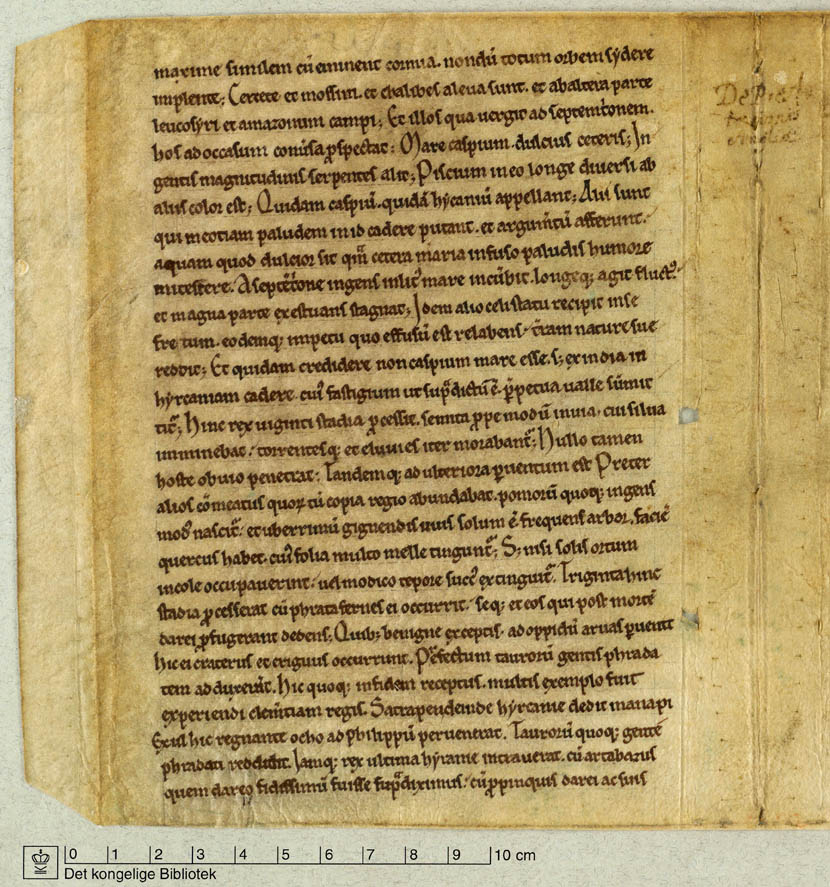 maxime similem cū eminent cornua. nondū totum orbem sẏdere
implente; Cercete et mossim. et chalibes a leua sunt. et ab altera parte
leucosẏri et amazonum campi; Et illos qua uergit ad septemt̄onem.
hos ad occasum conūsa ꝓspectat; Mare caspium dulcius ceteris; In
gentis magnitudinis serpentes alit; Piscium in eo longe diuersi ab
aliis color est; Quidam caspiū. quidā hẏcaniū appellant; Alii sunt
qui meotiam paludem in id cadere putant. et argum̄tū afferunt.
aquam quod dulcior sit qm̄ cetera maria infuso paludis humore
mitescere. A septēt̄one ingens in lit᷒ mare incūbit. longeq; agit fluct᷒.
et magna parte exestuans stagnat; Idem alio celi statu recipit in se
fretum. eodemq; impetu quo effusū est relabens. t̄ram nature sue
reddit; Et quidam credidere non caspium mare esse. s; ex india in
hẏrcaniam cadere. cui᷒ fastigium ut sup̄dictū ē. ꝑpetua ualle sūmit
tit᷑; Hinc rex uiginti stadia ꝓcessit. semita prope modū inuia. cui silua
imminebat. torrentesq; et eluuies iter morabant᷑; Nullo tamen
hoste obuio penetrat; Tandemq; ad ulteriora ꝑuentum est Preter
alios cōmeatus quoꝝ tū copia regio abundabat. pomorū quoq; ingens
mod᷒ nascit᷑. et uberrimū gignendis uuis solum ē frequens arbor. faciē
quercus habet. cui᷒ folia multo melle tingunt᷑; S; nisi solis ortum
incole occupauerint. uel modico tepore succ᷒ extinguit᷑. Triginta hinc
stadia ꝓcesserat cū phrataferues ei occurrit. seq; et eos qui post mortē
darei ꝓfugerant dedens; Quib; benigne exceptis. ad oppidū aruas ꝑuenit
hic ei craterus et eriguus occurrunt. P̄fectum taurorū gentis phrada
tem adduxerāt. hic quoq; in fidem receptus. multis exemplo fuit
experiendi clem̄tiam regis. Satrapen deinde hẏrcanie dedit manapi
Exul hic regnante ocho ad philippū peruenerat. Taurorū quoq; gentē
phradati reddidit. Iamq; rex ultima hẏranie intrauerat. cū artabazus
quem dareo fidissimū fuisse sup̄diximus. cū ꝓpinquis darei ac suis
0 1 2 3 4 5 6 7 8 9 10 cm
Det kongelige Bibliotek